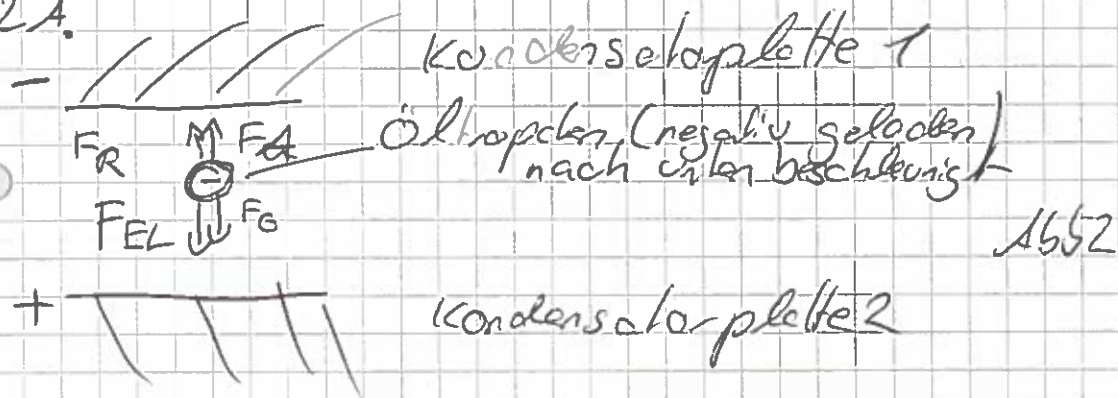 2A.
- Kondensatorplatte 1
FR FA Öltropchen (negativ geladen)
nach unten beschleunigt
FEL FG
Abb2
+ Kondensatorplatte 2